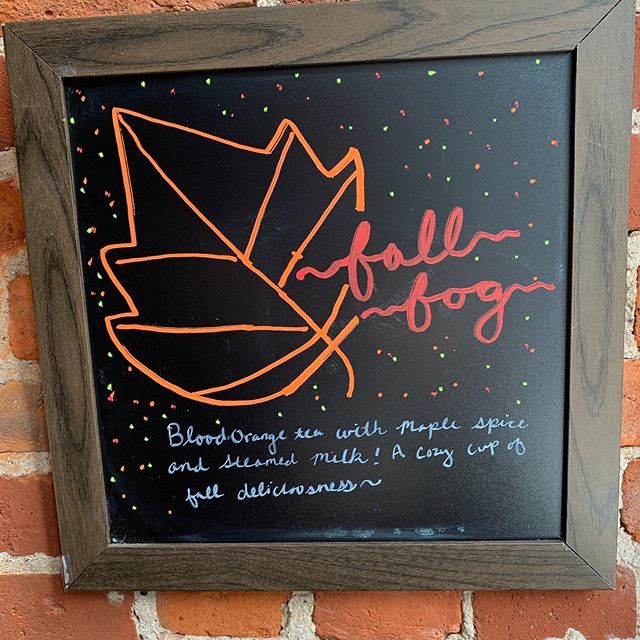 fall
fog
Blood Orange tea with Maple spice
and Steamed Milk! A cozy cup of
fall deliciousness~